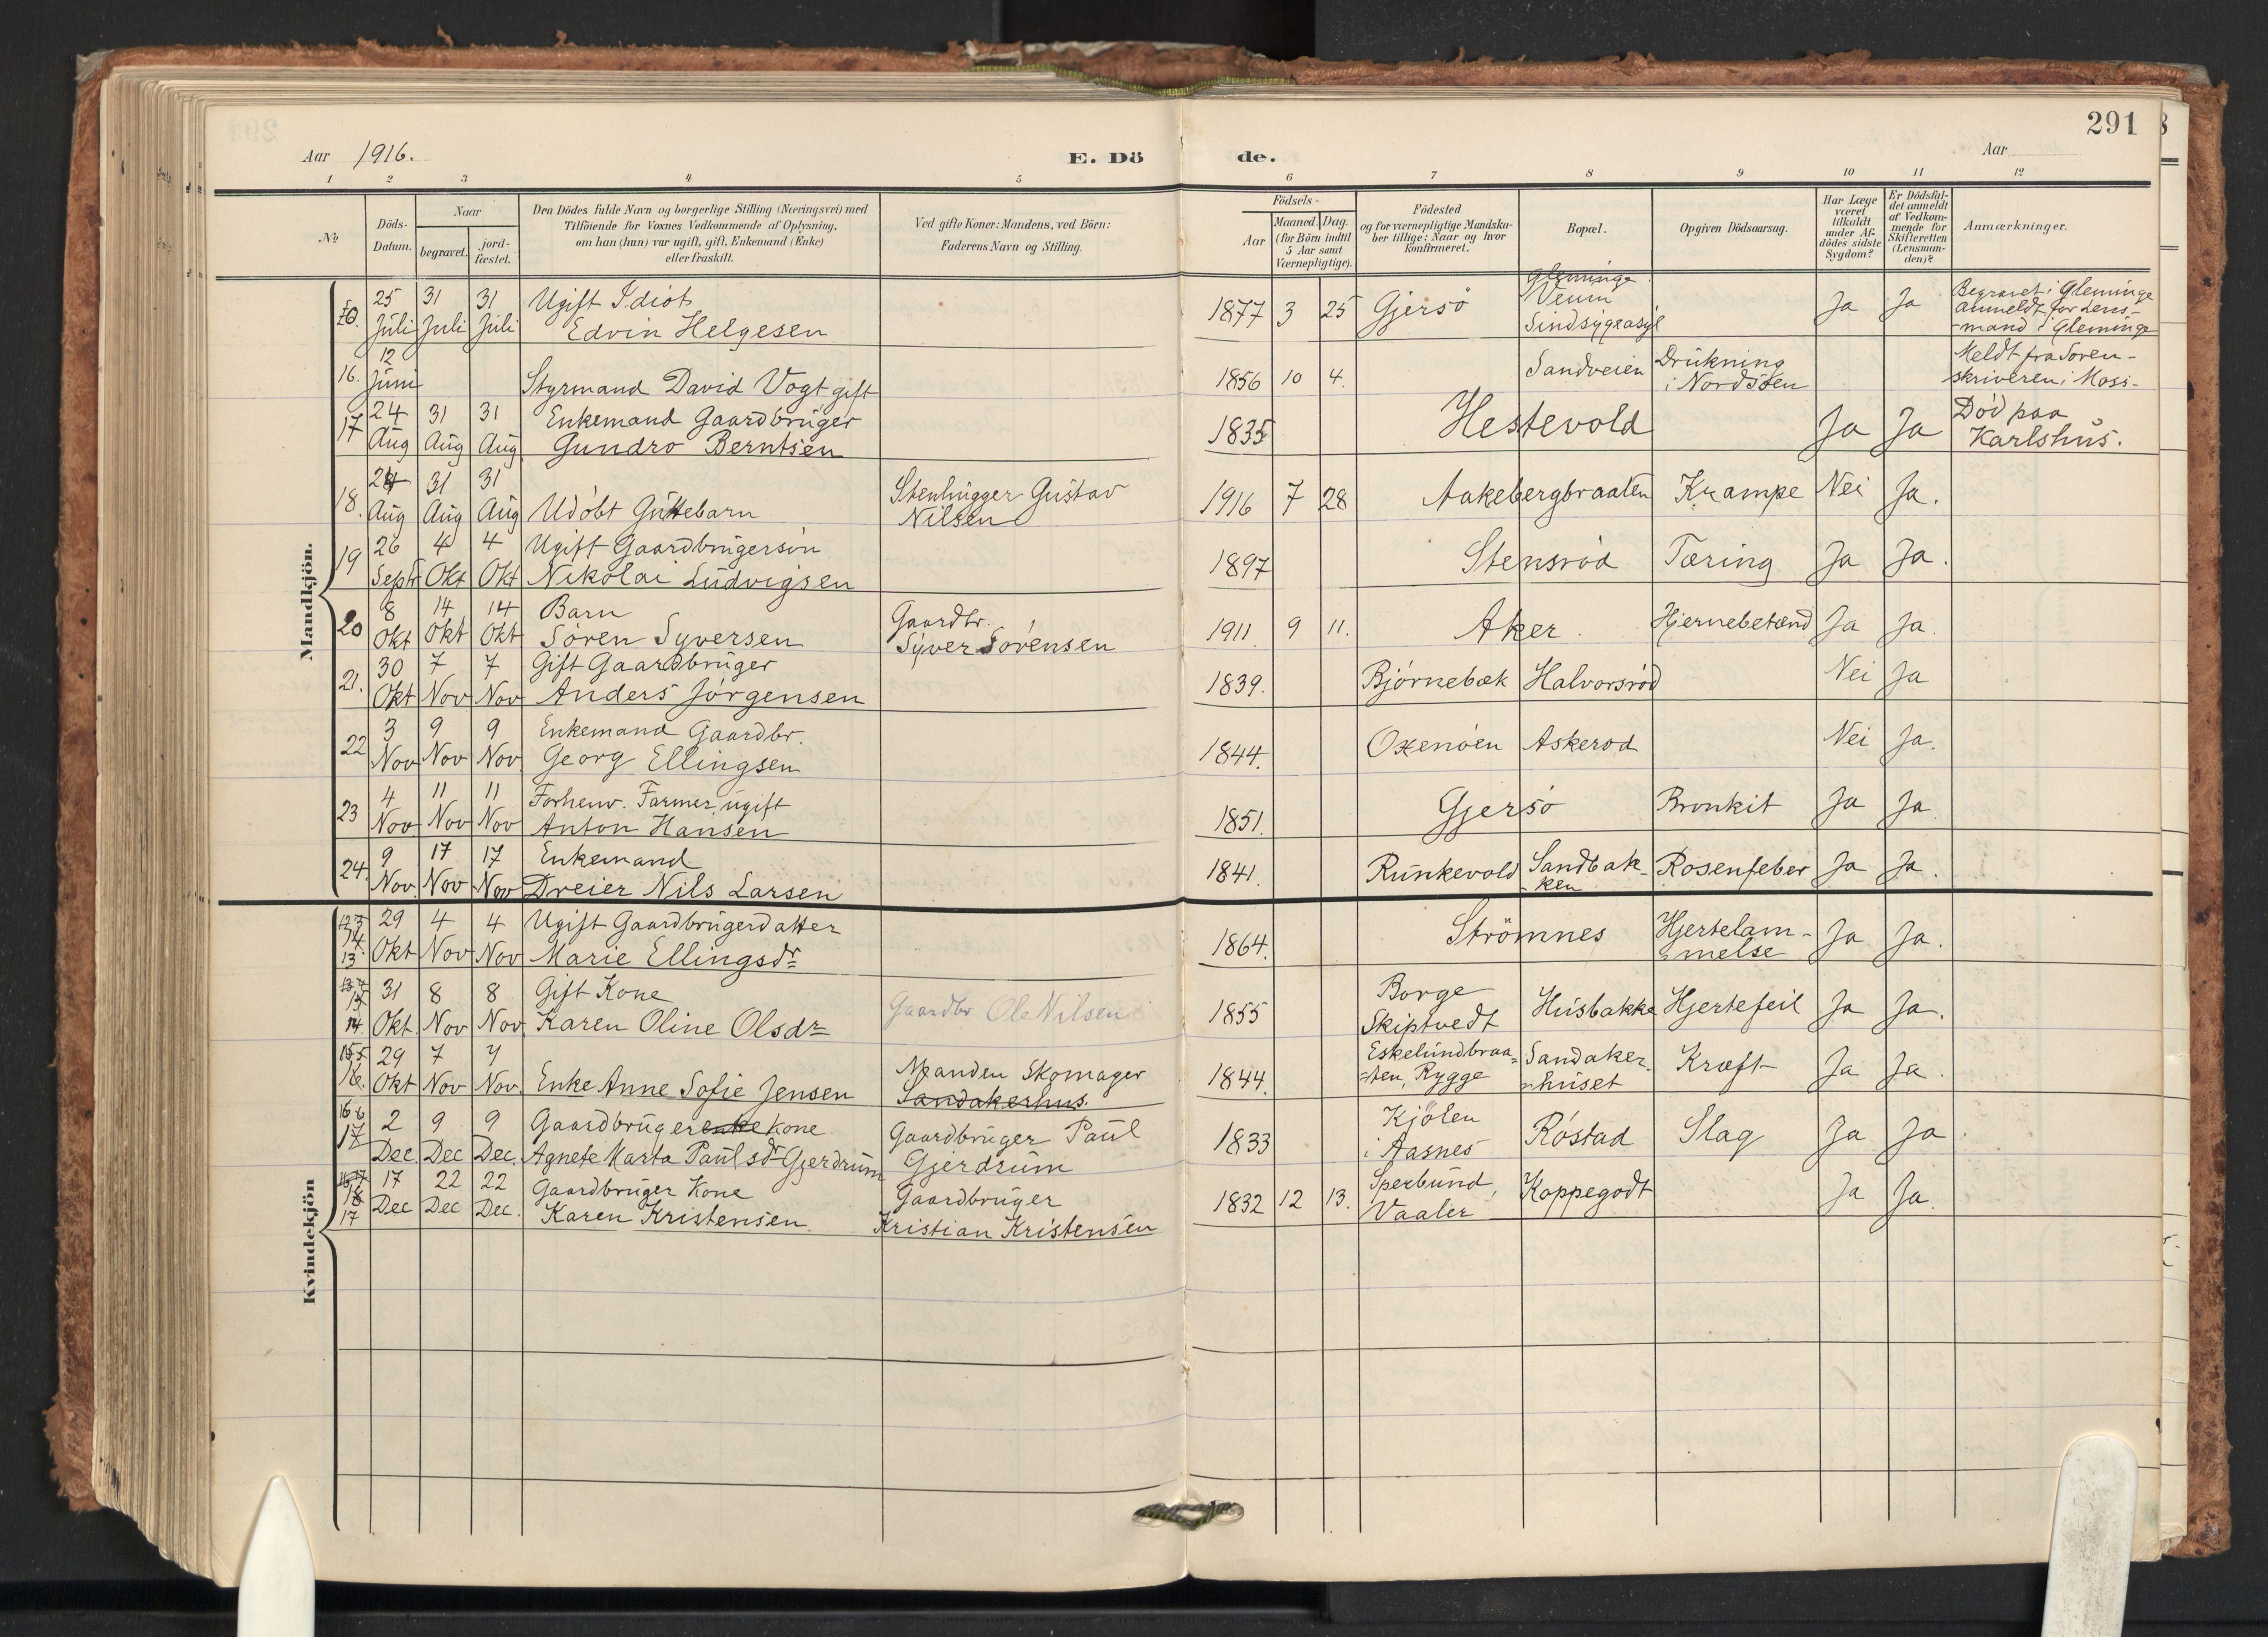 291
Aar 1916.
E. Dö de.
Aar
1 2 3 4 5 6 7 8 9 10 11 12
No
Döds-Datum.
Naar
begravet.
jord-fæstet.
Den Dödes fulde Navn og borgerlige Stilling (Næringsvei) med
Tilföiende for Voxnes Vedkommende af Oplysning,
om han (hun) var ugift, gift, Enkemand (Enke)
eller fraskilt.
Ved gifte Koner: Mandens, ved Börn:
Faderens Navn og Stilling.
Födsels-
Aar
Maaned. Dag.
(for Börn indtil
5 Aar samt
Værnepligtige).
Födested
og for værnepligtige Mandska-
ber tillige: Naar og hvor
konfirmeret.
Bopæl.
Opgiven Dödsaarsag.
Har Læge
været
tilkaldt
under Af-
dödes sidste
Sygdom?
Er Dödsfal-
det anmeldt
af Vedkom-
mende for
Skifteretten
(Lensman-
den)?
Anmærkninger.
Mandkjön.
25 31 31 Ugift Idiot 1877 3 25 Gjersö Gleminge Veum Sindsygeasyl Ja Ja Begravet i Gleminge
Juli Juli Juli Edvin Helgesen anmeldt for Lens-
-mand i Gleminge
16. 12 Juni Styrmand David Vogt gift 1856 10 4. Sandveien Drukning i Nordsöen Meldt fra Soren-
skriveren i Moss-
17 24 31 31 Enkemand Gaardbruger 1835 Hestevold Ja Ja Död paa
Aug Aug Aug Gundro Berntsen Karlshus.
18. 24 31 31 Stenhugger Gustav 1916 7 28 Aakebergbraaten Krampe Nei Ja.
Aug Aug Aug Udöbt Guttebarn Nilsen
19 26 4 4 Ugift Gaardbrugersön 1897 Stensröd Tæring Ja Ja.
Sept Okt Okt Nikolai Ludvigsen
20 8 14 14 Barn Gaardbr. 1911 9 11. Aker Hjernebetænd Ja Ja.
Okt Okt Okt Sören Syversen Syver Sörensen
21. 30 7 7 Gift Gaardbruger 1839. Björnebæk Halvorsröd Nei Ja
Okt Nov Nov Anders Jörgensen
22 3 9 9 Enkemand Gaardbr. 1844. Oxenöen Askeröd Nei Ja.
Nov Nov Nov Georg Ellingsen
23 4 11 11 Forhenv. Farmer, ugift 1851. Gjersö Bronkit Ja Ja
Nov Nov Nov Anton Hansen
24. 9 17 17 Enkemand 1841. Runkevold Sandbak- Rosenfeber Ja Ja.
Nov. Nov Nov Dreier Nils Larsen -ken
Kvindekjön
14 13 29 4 4 Ugift Gaardbrugerdatter 1864. Strömnes Hjertelam- Ja Ja.
Okt Nov Nov Marie Ellingsdr -melse
15 14 31 8 8 Gift Kone Gaardbr Ole Nilsen 1855 Borge Husbakke Hjertefeil Ja Ja.
Okt. Nov Nov Karen Oline Olsdr Skiptvedt
15 16. 29 7 7 Manden Skomager 1844. Eskelundbraa- Sandaker- Kræft Ja Ja.
Okt Nov Nov. Enke Anne Sofie Jensen Sandakerhus. -ten, Rygge huset
16 17 2 9 9 Gaardbrugerenke kone Gaardbruger Paul 1833 Kjölen Röstad Slag Ja Ja.
Dec. Dec Dec. Agnete Marta Paulsdr Gjerdrum Gjerdrum i Aasnes
18 17 17 22 22 Gaardbruger Kone Gaardbruger 1832 12 13. Sperbund, Koppegodt Ja Ja.
Dec Dec Dec. Karen Kristensen. Kristian Kristensen Vaaler